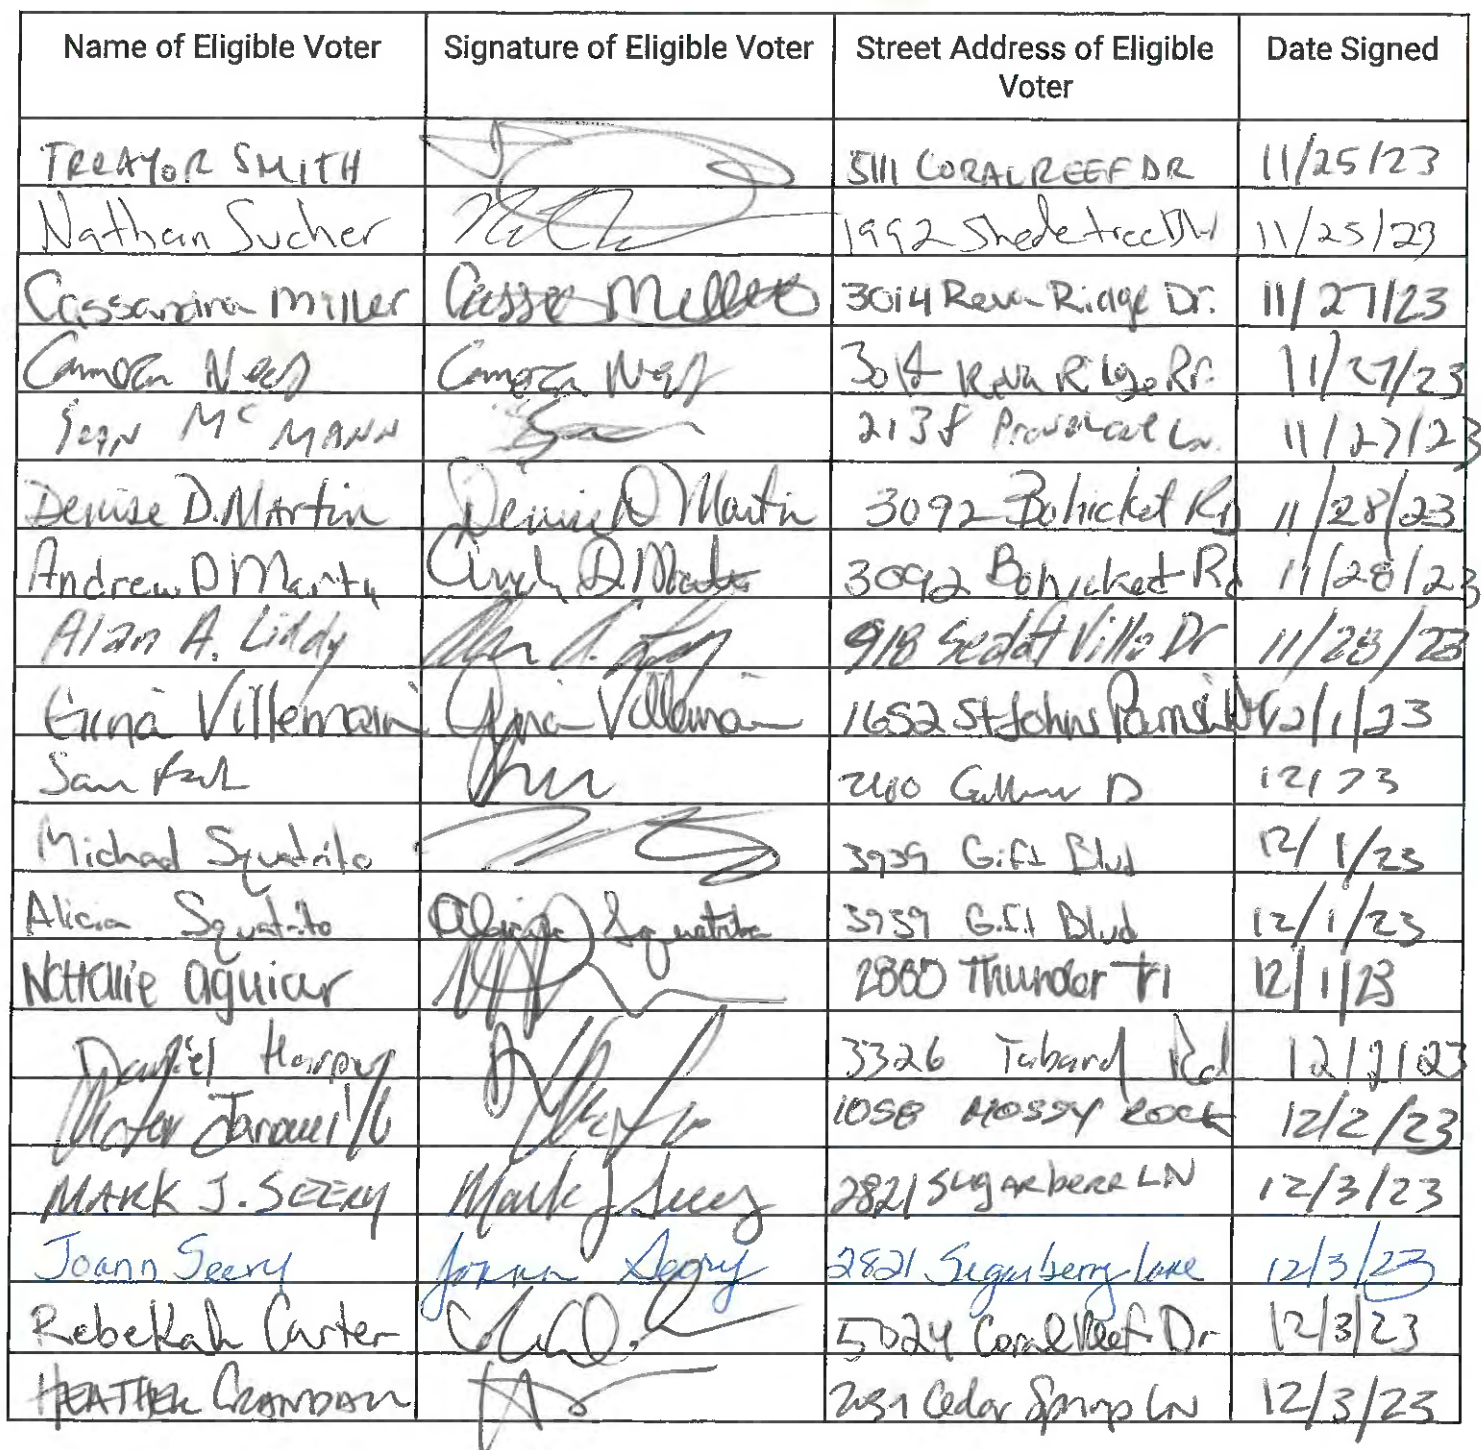 Name of Eligible Voter Signature of Eligible Voter Street Address of Eligible Voter Date Signed
TREAYOR SMITH 5111 CORAL REEF DR 11/25/23
Nathan Sucher 1992 Shadetree 11/25/23
Cassandra Miller 3014 Reva Ridge Dr. 11/27/23
3014 Reva Ridge Dr. 11/27/23
Sean McMann 2138 Ln. 11/27/23
Denise D. Martin Denise D Martin 3092 Bohicket Rd 11/28/23
Andrew D Martin 3092 Bohicket Rd 11/28/23
Alan A. Liddy 918 Villa Dr 11/28/23
Gina Villemain Gina Villemain 1652 St Johns Parrish 12/1/23
Sam
Michael Squatrito 3939 Gift Blvd 12/1/23
Alicia Squatrito Alicia Squatrito 3939 Gift Blvd 12/1/23
Nathalie Aguiar Thunder Trl 12/1/23
Daniel 3326 Tabard Rd
Jaramillo 1058 MOSSY ROCK 12/2/23
MARK J. SEERY Mark J Seery 2821 Sugarberr LN 12/3/23
Joann Seery Joann Seery 2821 Sugarberry Lane 12/3/23
Rebekah Carter 5024 Coral Reef Dr 12/3/23
HEATHER CRANDALL Cedar Springs LN 12/3/23